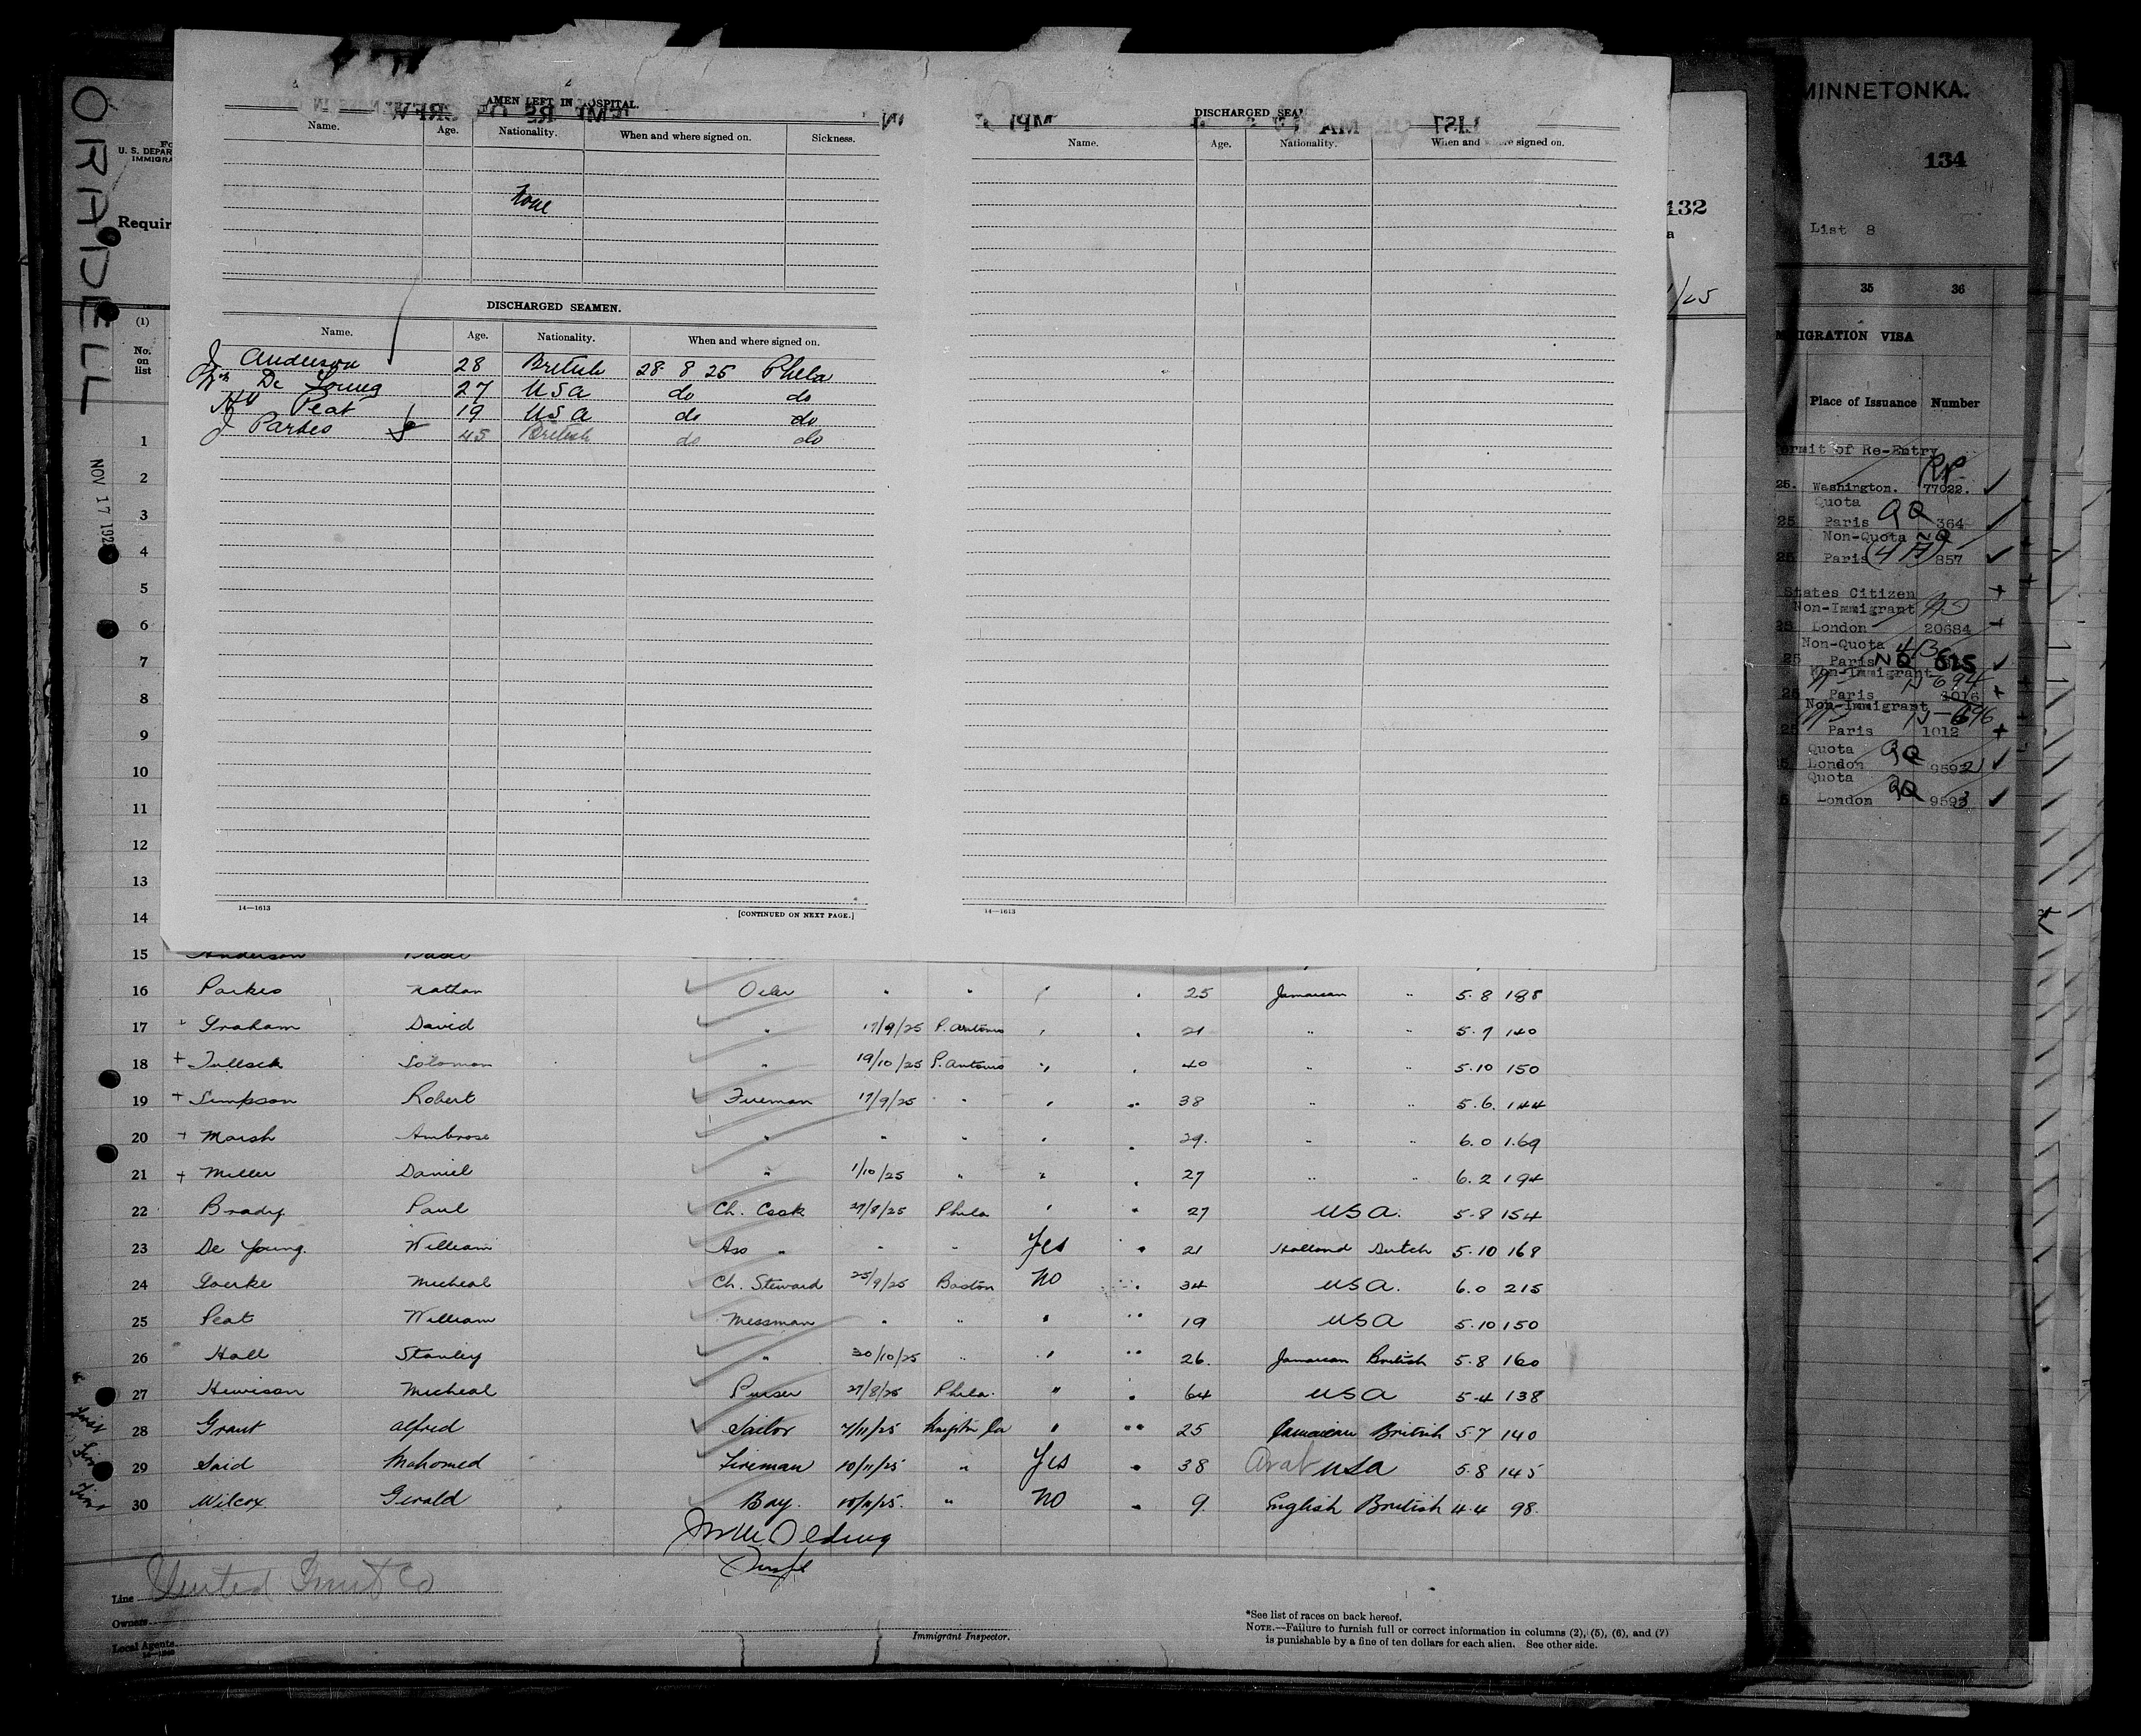 ORADELL
NOV 17 192
U. S. DEPAR
IMMIGRA
Requir
(1)
No. on list
AMEN LEFT IN HOSPITAL.
Name. Age. Nationality. When and where signed on. Sickness.
None
DISCHARGED SEAMEN.
Name. Age. Nationality. When and where signed on.
J Anderson 28 British 28 8 25 Phila
Wm De Young 27 USA do do
Peat 19 USA do do
J Parkes 45 British do do
14—1613 [CONTINUED ON NEXT PAGE.]
DISCHARGED SEAM
Name. Age. Nationality. When and where signed on.
14—1613
132
/25
1
2
3
4
5
6
7
8
9
10
11
12
13
14
15 Anderson
16 Parkes Nathan Oiler " " " " 25 Jamaican " 5.8 188
17 + Graham David " 17/9/25 P. Antonio " " 21 " " 5.7 140
18 + Tulloch Solomon " 19/10/25 P. Antonio " " 40 " " 5.10 150
19 + Simpson Robert Fireman 17/9/25 " " " 38 " " 5.6. 144
20 + Marsh Ambrose " " " " " 29. " " 6.0 1.69
21 + Miller Daniel " 1/10/25 " " " 27 " " 6.2 194
22 Brady. Paul Ch. Cook 27/8/25 Phila " " 27 USA. 5.8 154
23 De Young. William Ass " " " Yes " 21 Holland Dutch 5.10 168
24 Goerke Micheal Ch. Steward 25/9/25 Boston No " 34 USA. 6.0 215
25 Peat William Messman " " " " 19 USA 5.10 150
26 Hall Stanley " 30/10/25 " " " 26. Jamaican British 5.8 160
27 Hewison Micheal Purser 27/8/25 Phila. " " 64 USA 5.4 138
28 Grant Alfred Sailor 7/11/25 Kingston Ja " " 25 Jamaican British 5.7 140
29 Said Mahomed Fireman 10/11/25 " Yes " 38 Arab USA 5.8 145
30 Wilcox Gerald Boy. 10/11/25. " No " 9. English British 4.4 98.
Line United Fruit Co
Owners
Local Agents
Immigrant Inspector.
*See list of races on back hereof.
NOTE.—Failure to furnish full or correct information in columns (2), (5), (6), and (7)
is punishable by a fine of ten dollars for each alien. See other side.
MINNETONKA.
134
List 8
35 36
MIGRATION VISA
Place of Issuance Number
ermit of Re-Entry
25. Washington. 77022.
Quota
25 Paris QQ 364
Non-Quota NQ
25 Paris (4 A) 857
States Citizen
Non-Immigrant
25 London 20684
Non-Quota 4B
25 Paris NQ 625
Non-Immigrant N-694
25 Paris 1016
Non-Immigrant N-696
25 Paris 1012
Quota
5 London QQ 9592
Quota
5 London QQ 9593